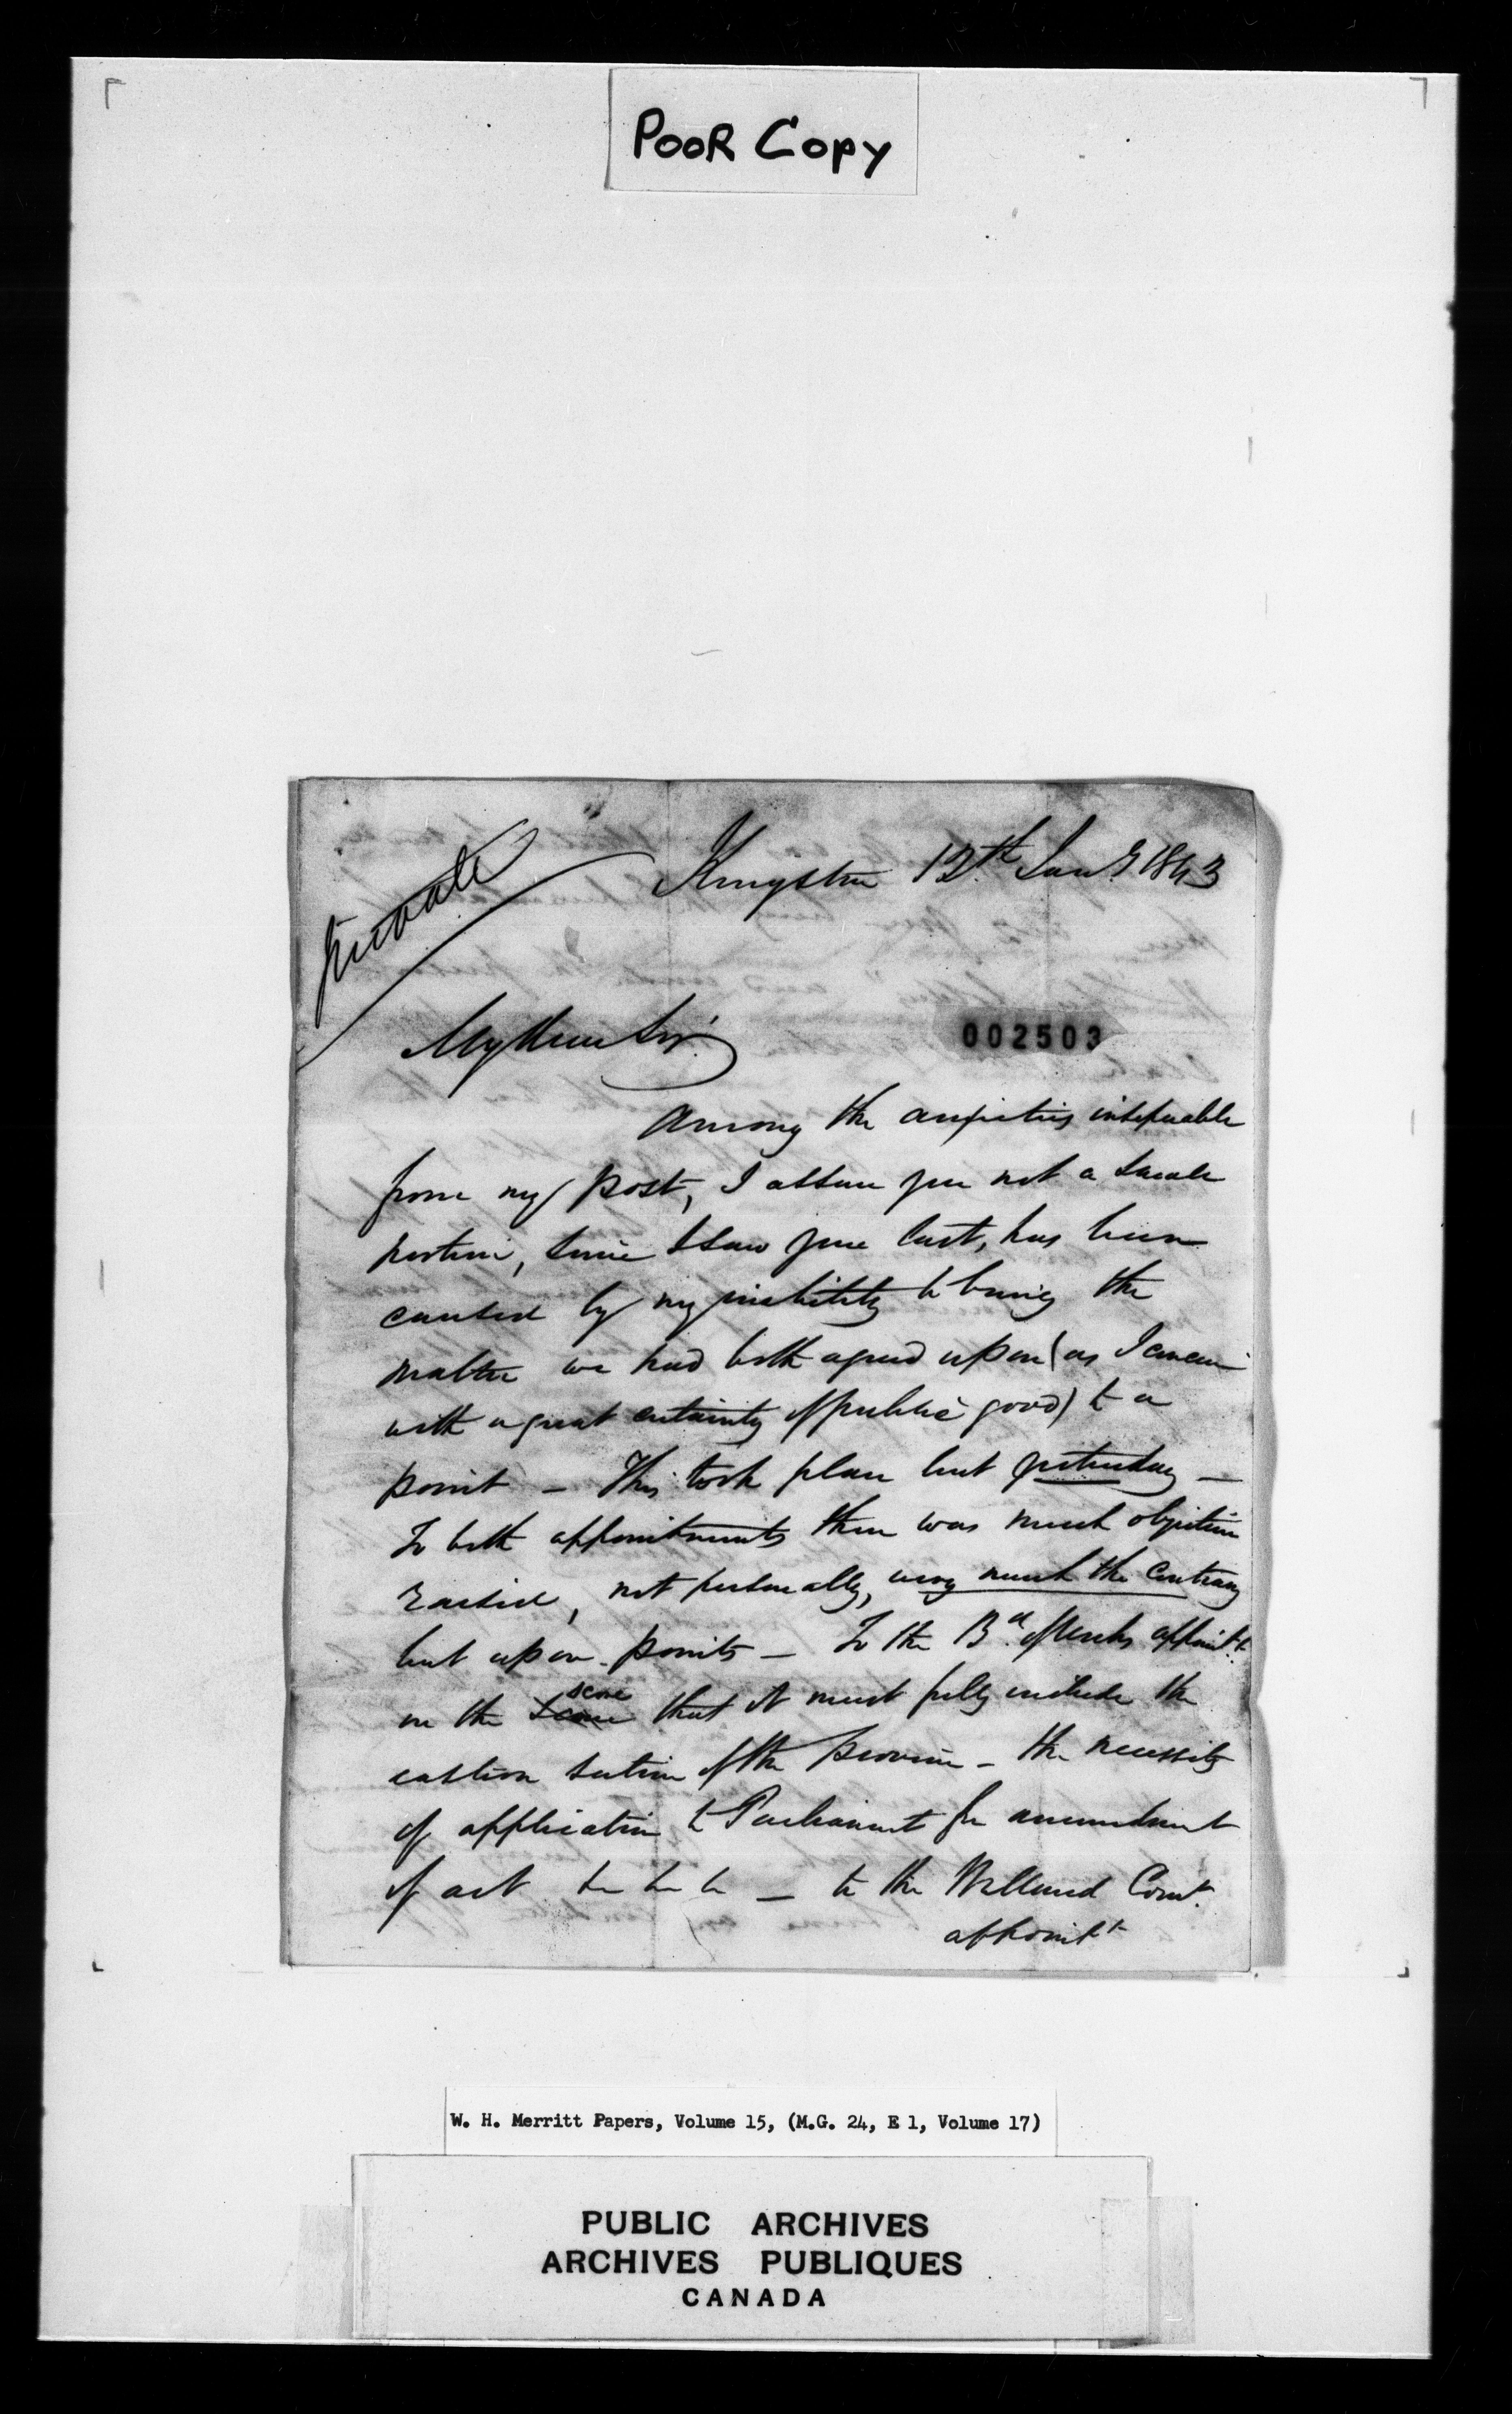 POOR COPY
Private
Kingston 12th Jany 1843
My Dear Sir
002503
Among the anxieties inseparable
from my post, I assure you not a small
portion, since I saw you last, has been
caused by my inability to bring the
matter we had both agreed upon (as I conceive
with a great certainty of public good) to a
point — This took place but yesterday —
To both appointments there was much objection
raised, not personally, very much the contrary
but upon points — To the Bd. of Works appointt.
on the score that it must fully include the
eastern section of the Province — the necessity
of application to Parliament for amendment
of act &c &c &c — to the Welland Comt.
appointt
W. H. Merritt Papers, Volume 15, (M.G. 24, E 1, Volume 17)
PUBLIC ARCHIVES
ARCHIVES PUBLIQUES
CANADA